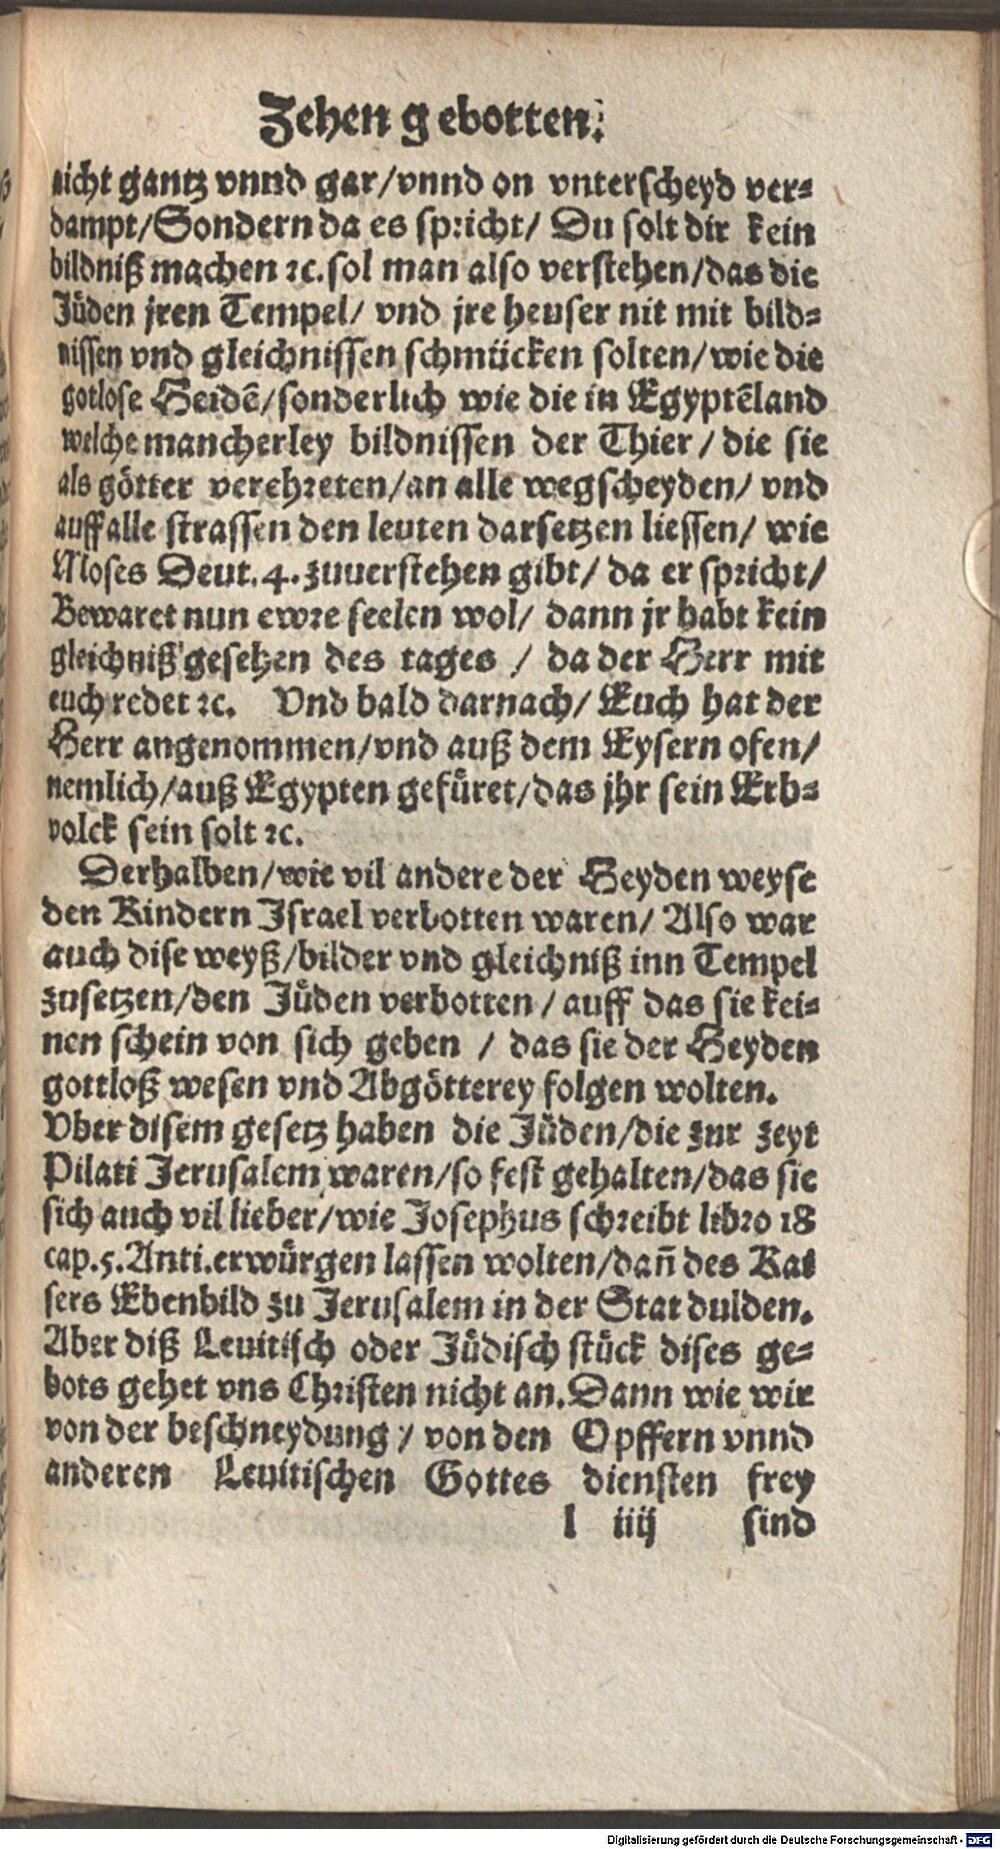 Zehen gebotten.
nicht gantz vnnd gar/vnnd on vnterscheyd ver⸗
dampt/Sondern da es spricht/ Du solt dir kein
bildniß machen ꝛc. sol man also verstehen/das die
Jüden jren Tempel/ vnd jre heuser nit mit bild⸗
nissen vnd gleichnissen schmücken solten/wie die
gotlose Heidē/sonderlich wie die in Egyptēland
welche mancherley bildnissen der Thier/ die sie
als götter verehreten/an alle wegscheyden/ vnd
auff alle strassen den leuten darsetzen liessen/ wie
Moses Deut. 4. zuuerstehen gibt/ da er spricht/
Bewaret nun ewre seelen wol/ dann jr habt kein
gleichniß gesehen des tages / da der Herr mit
euch redet ꝛc. Vnd bald darnach/ Euch hat der
Herr angenommen/vnd auß dem Eysern ofen/
nemlich/auß Egypten gefüret/das jhr sein Erb⸗
volck sein solt ꝛc.
Derhalben/wie vil andere der Heyden weyse
den Kindern Israel verbotten waren/ Also war
auch dise weyß/bilder vnd gleichniß inn Tempel
zusetzen/den Jüden verbotten / auff das sie kei⸗
nen schein von sich geben / das sie der Heyden
gottloß wesen vnd Abgötterey folgen wolten.
Vber disem gesetz haben die Jüden/die zur zeyt
Pilati Jerusalem waren/so fest gehalten/das sie
sich auch vil lieber/wie Josephus schreibt libro 18
cap. 5. Anti. erwürgen lassen wolten/dañ des Kai
sers Ebenbild zu Jerusalem in der Stat dulden.
Aber diß Leuitisch oder Jüdisch stück dises ge⸗
bots gehet vns Christen nicht an. Dann wie wir
von der beschneydung / von den Opffern vnnd
anderen Leuitischen Gottes diensten frey
l iiij sind
Digitalisierung gefördert durch die Deutsche Forschungsgemeinschaft - DFG